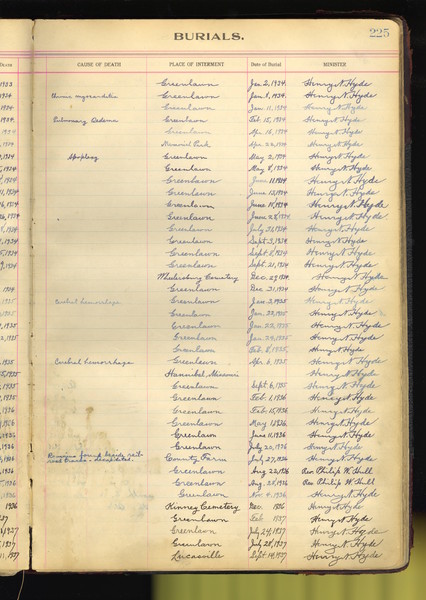 BURIALS. 225
CAUSE OF DEATH PLACE OF INTERMENT Date of Burial MINISTER
1933 Greenlawn Jan 2, 1934. Henry N. Hyde
1934 Greenlawn Jan 8, 1934. Henry N. Hyde
1934 Greenlawn Jan 11, 1934 Henry N. Hyde
1934 Pulmonary Oedema Greenlawn Feb 15, 1934 Henry N. Hyde
1934 Greenlawn Apr 16, 1934 Henry N. Hyde
1934 Memorial Park Apr 22, 1934 Henry N. Hyde
1934 Apoplexy Greenlawn May 2, 1934 Henry N. Hyde
1934 Greenlawn May 8, 1934 Henry N. Hyde
1934 Greenlawn June 1934 Henry N. Hyde
1934 Greenlawn June 12, 1934 Henry N. Hyde
1934 Greenlawn June 1934 Henry N. Hyde
1934 Greenlawn June 28, 1934 Henry N. Hyde
1934 Greenlawn July 1934 Henry N. Hyde
1934 Greenlawn Sept 3, 1934 Henry N. Hyde
1934 Greenlawn Sept 1934 Henry N. Hyde
1934 Greenlawn Sept 21, 1934 Henry N. Hyde
Wheelersburg Cemetery Dec. 1934 Henry N. Hyde
1934 Greenlawn Dec 31, 1934 Henry N. Hyde
1935 Cerebral hemorrhage Greenlawn Jan 2, 1935 Henry N. Hyde
1935 Greenlawn Jan 1935 Henry N. Hyde
1935 Greenlawn Jan 22, 1935 Henry N. Hyde
1935 Greenlawn Jan 1935 Henry N. Hyde
Greenlawn Feb 1935 Henry N. Hyde
1935 Cerebral hemorrhage Greenlawn Apr 6, 1935 Henry N. Hyde
1935 Hannibal, Missouri Henry N. Hyde
1935 Greenlawn Sept 6, 1935 Henry N. Hyde
1935 Greenlawn Feb 1, 1936 Henry N. Hyde
1926 Greenlawn Feb 15, 1936 Henry N. Hyde
1926 Greenlawn May 1936 Henry N. Hyde
1926 Greenlawn June 11, 1936 Henry N. Hyde
1926 Greenlawn July 20, 1936 Henry N. Hyde
Remains found beside rail-
road tracks - decapitated.
1926 County Farm July 27, 1936 Henry N. Hyde
1926 Greenlawn Aug 22, 1936 Rev. Philip W. Hull
1926 Greenlawn Aug. 25, 1936 Rev. Philip W. Hull
1936 Greenlawn Nov. 9, 1936 Henry N. Hyde
1936 Kinney Cemetery Dec. 1936 Henry N. Hyde
Greenlawn Feb 1937 Henry N. Hyde
1937 Greenlawn July 24, 1937 Henry N. Hyde
1937 Greenlawn July 28, 1937 Henry N. Hyde
1937 Lucasville Sept 14, 1937 Henry N. Hyde